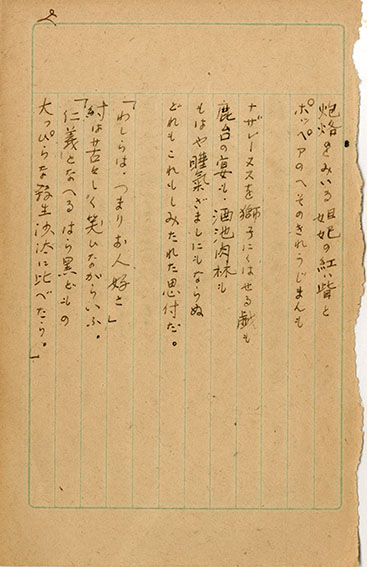 炮烙をみいる妲妃の紅い眥と
ポッペアのへそのきれうじまんも
ナザレーヌスを獅子にくはせる戯も
鹿台の宴も・酒池肉林も
もはや睡氣ざましにもならぬ
どれもこれもしみたれた思付だ。
「わしらは、つまりお人好さ」
紂は苦々しく笑ひながらいふ。
「仁義となへるはら黒どもの
大っぴらな殺生沙汰に比べたら。」